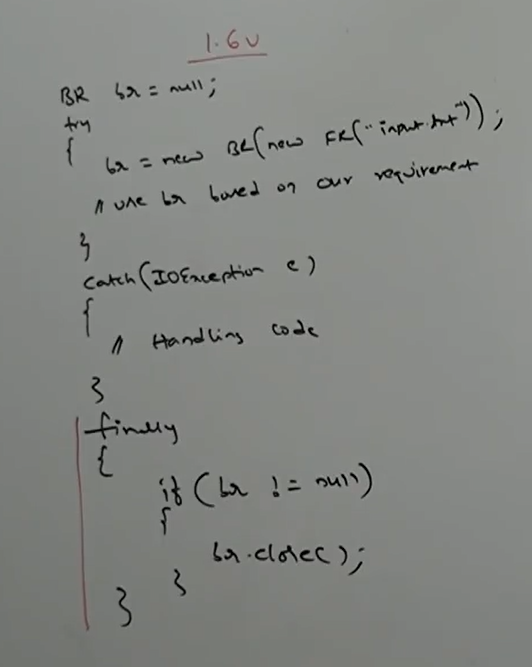 1.6v
BR br = null;
try
{
br = new BR(new FR("input.txt"));
// use br based on our requirement
}
catch(IOException e)
{
// Handling code
}
finally
{
if (br != null)
{
br.close();
}
}